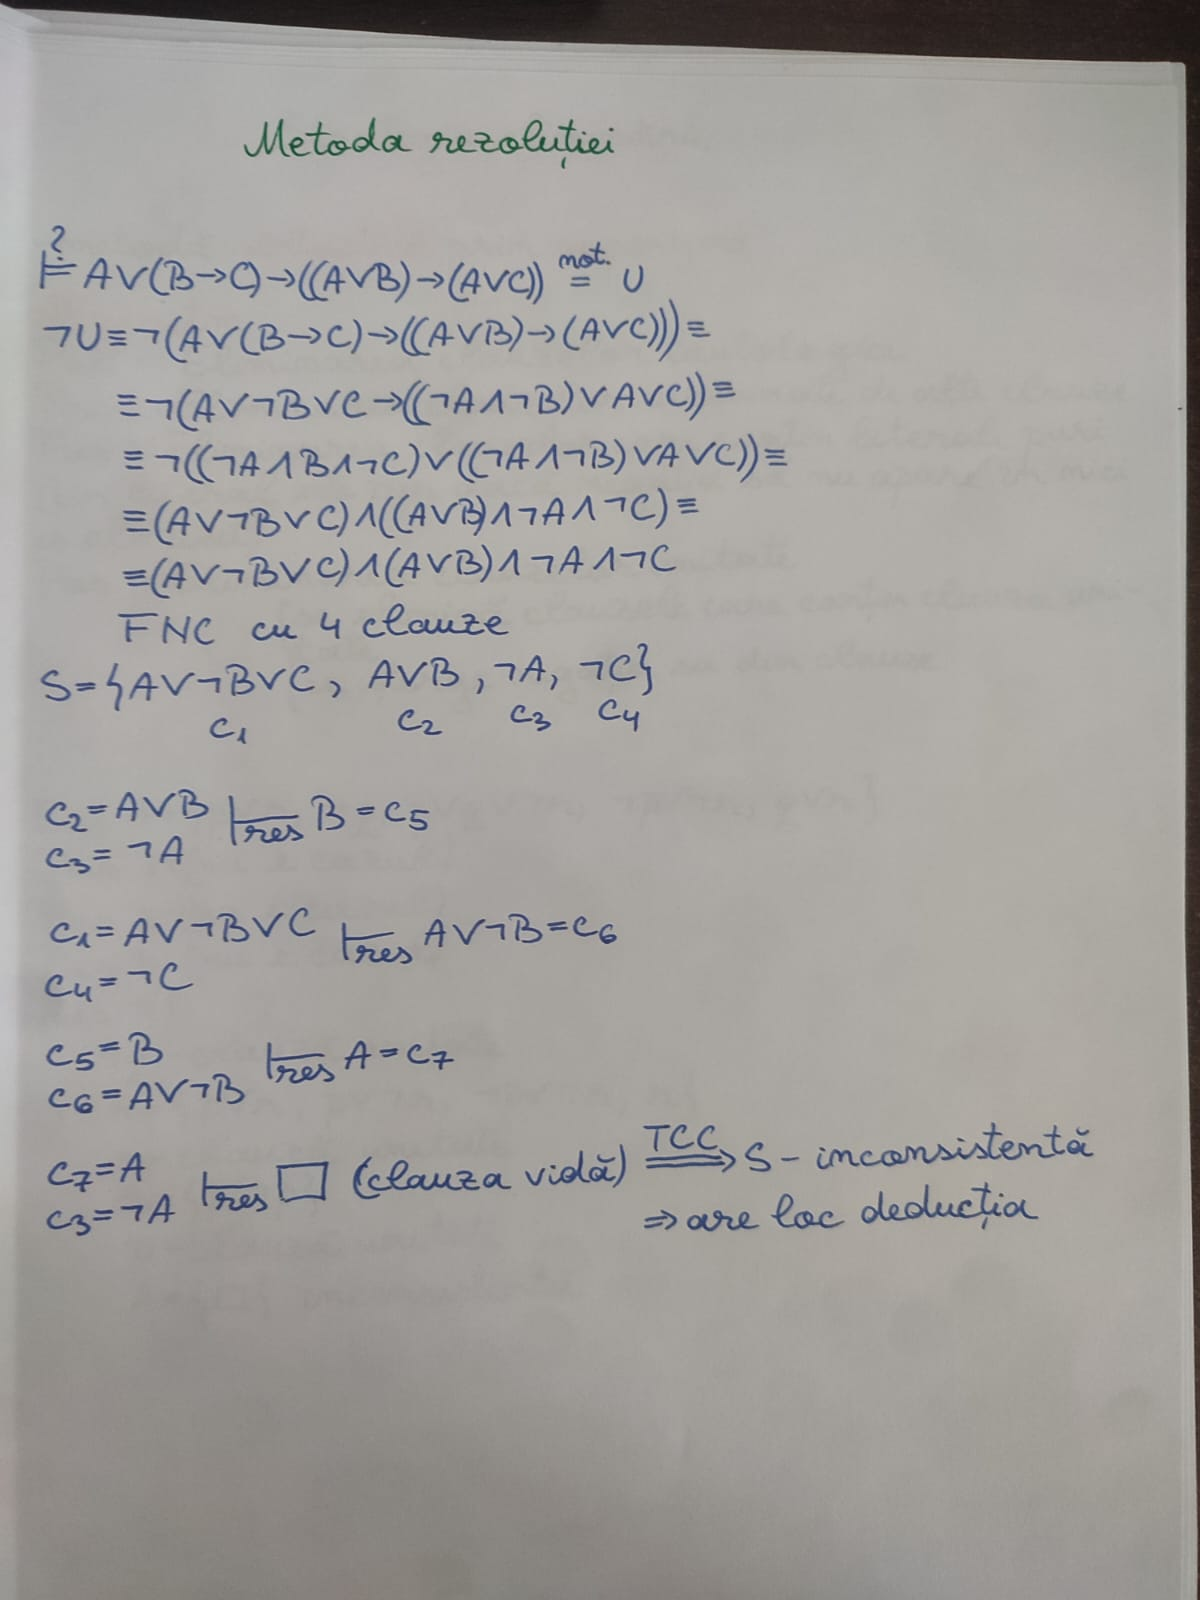 Metoda rezoluției
?
⊨ A∨(B→C)→((A∨B)→(A∨C)) not.= U
¬U≡¬(A∨(B→C)→((A∨B)→(A∨C)))≡
≡¬(A∨¬B∨C→((¬A∧¬B)∨A∨C))≡
≡¬((¬A∧B∧¬C)∨((¬A∧¬B)∨A∨C))≡
≡(A∨¬B∨C)∧((A∨B)∧¬A∧¬C)≡
≡(A∨¬B∨C)∧(A∨B)∧¬A∧¬C
FNC cu 4 clauze
S={A∨¬B∨C, A∨B, ¬A, ¬C}
C1 C2 C3 C4
C2=A∨B ⊢res B=C5
C3=¬A
C1=A∨¬B∨C ⊢res A∨¬B=C6
C4=¬C
C5=B ⊢res A=C7
C6=A∨¬B
C7=A ⊢res □ (clauza vidă) TCC⟹ S-inconsistentă
C3=¬A ⇒are loc deducția